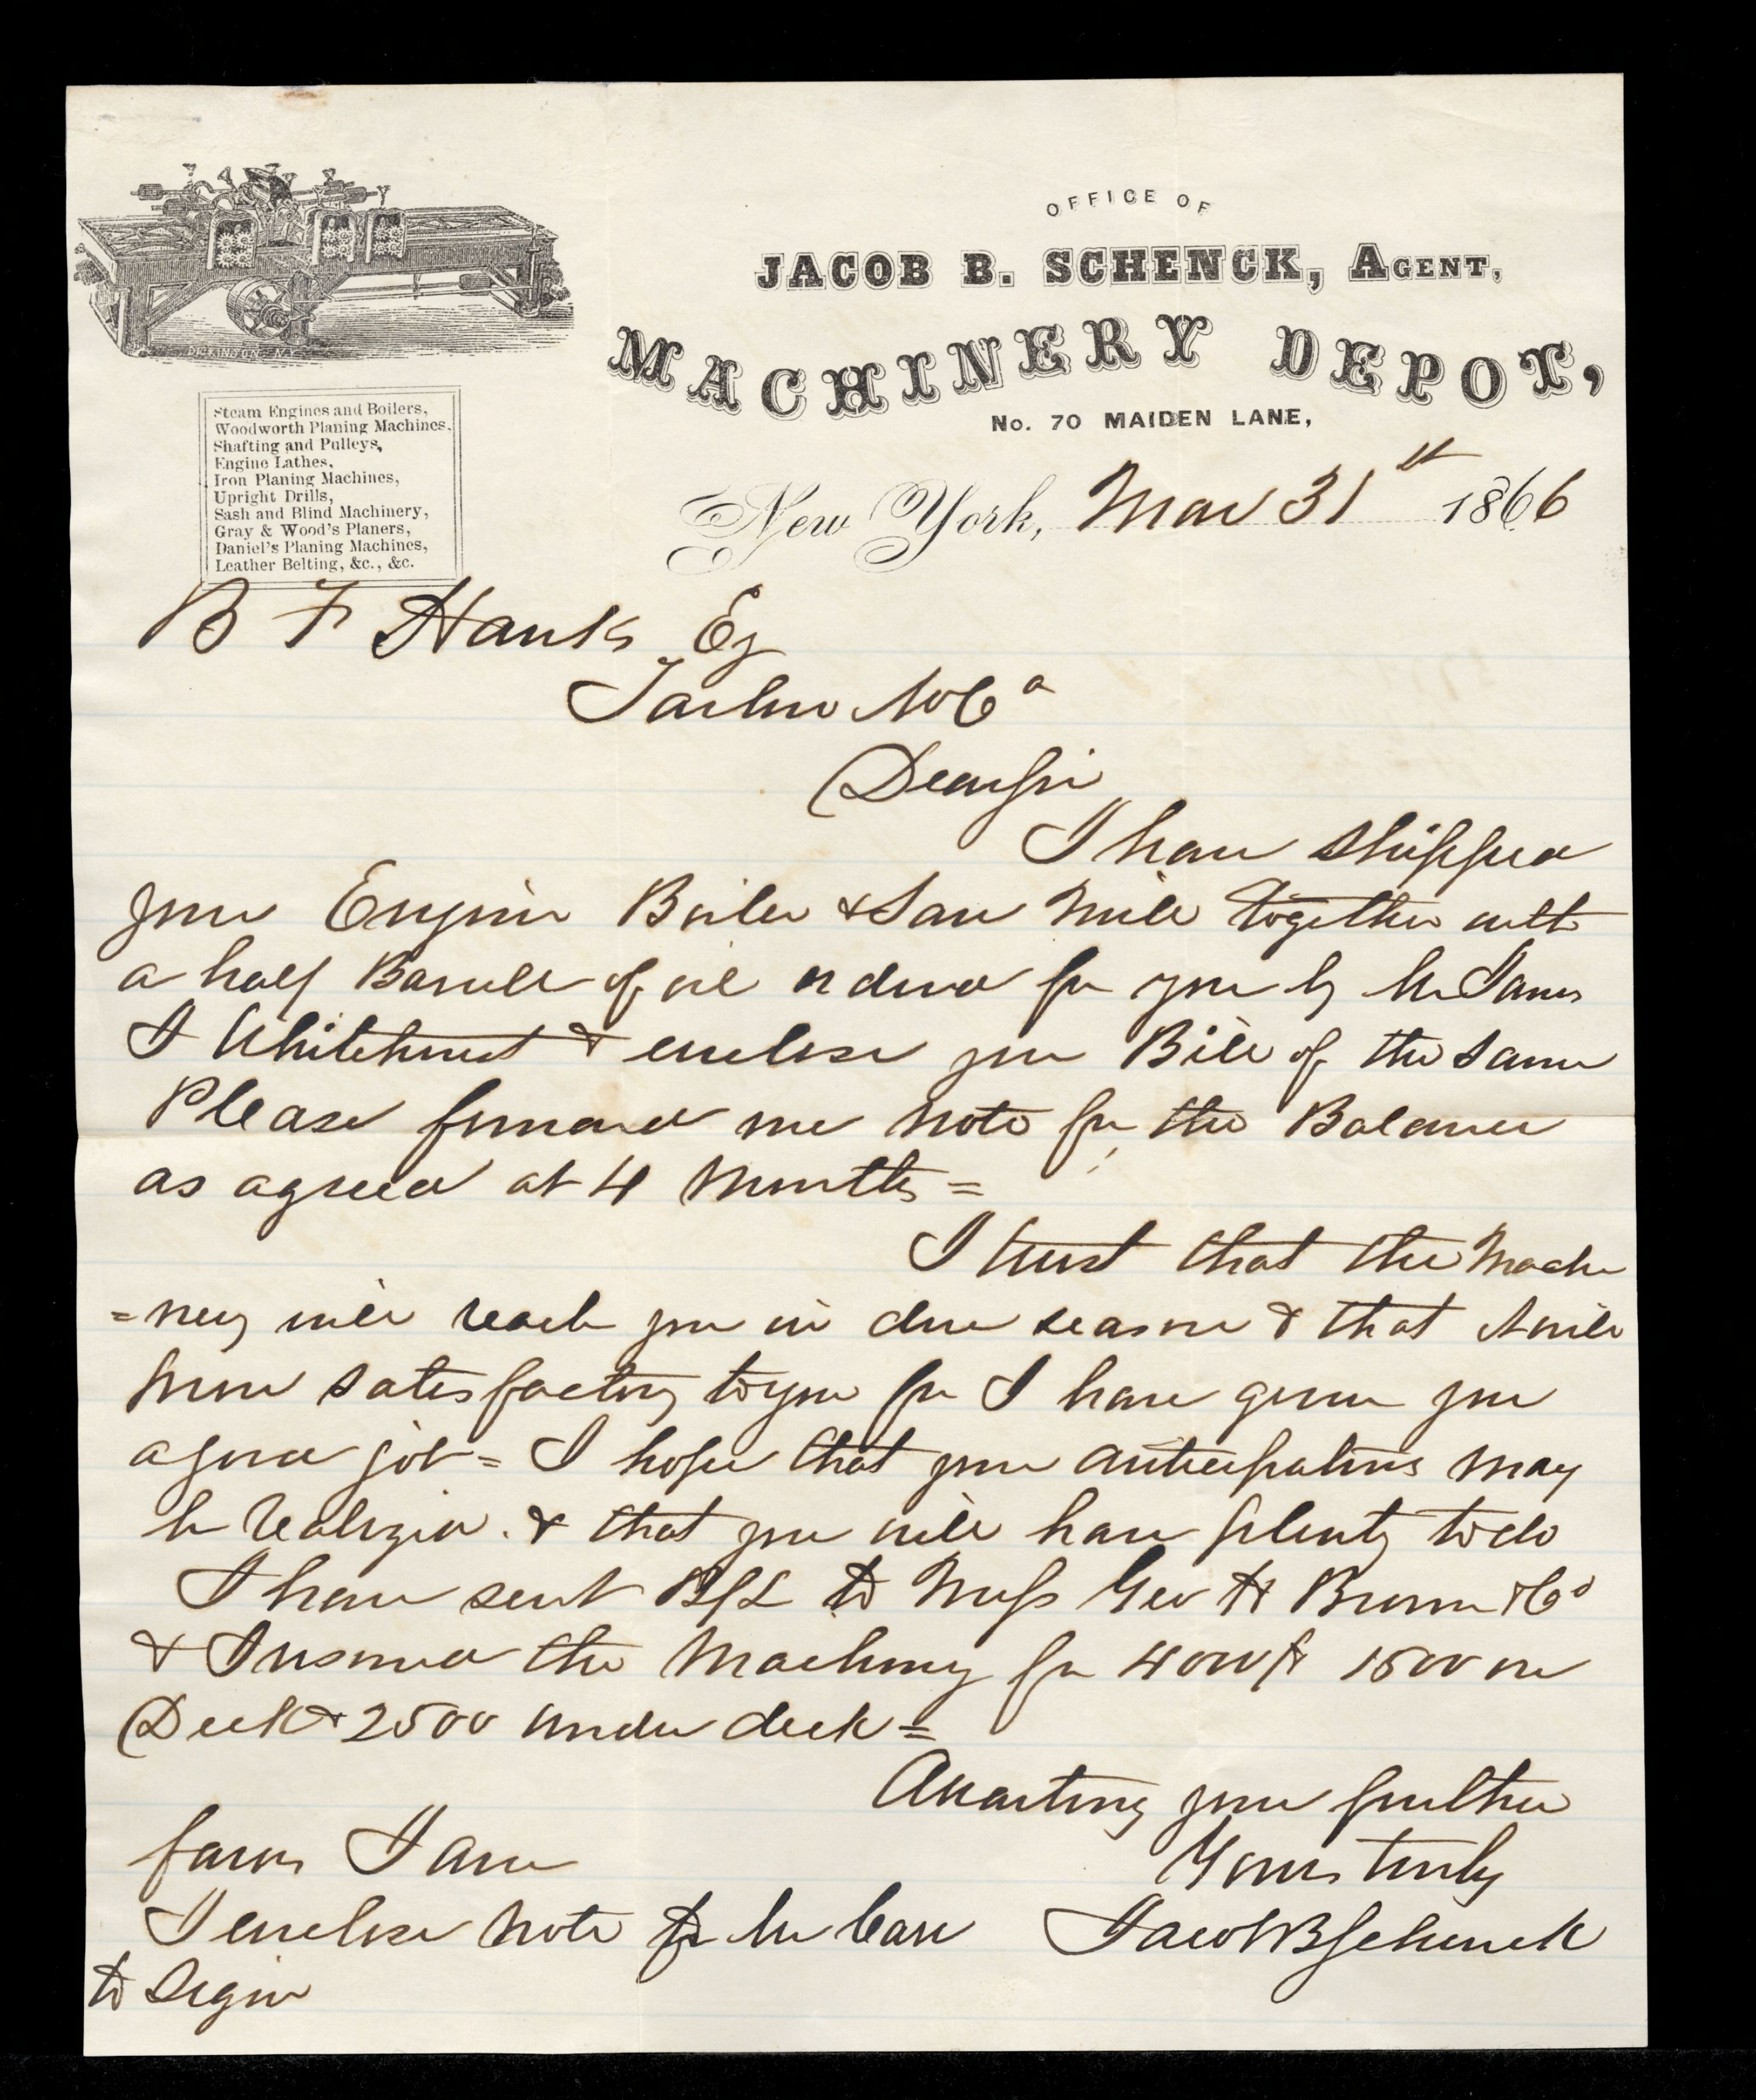 OFFICE OF
JACOB B. SCHENCK, AGENT,
MACHINERY DEPOT,
No. 70 MAIDEN LANE,
DICKINSON N.Y.
Steam Engines and Boilers,
Woodworth Planing Machines.
Shafting and Pulleys,
Engine Lathes,
Iron Planing Machines,
Upright Drills,
Sash and Blind Machinery,
Gray & Wood's Planers,
Daniel's Planing Machines,
Leather Belting, &c., &c.
New York, Mar 31st 1866
B F Hanks Eq
Tarboro No Ca
Dear Sir
I have shipped
your Engine Boiler & Saw Mill together with
a half Barrell of oil ordered for you by Mr James
I Whitehurst & enclose you Bill of the same
Please forward me note for the Balance
as agreed at 4 Months =
I trust that the Machi
=nery will reach you in due season & that it will
prove satisfactory to you for I have given you
a good job = I hope that your anticipations may
be realized. & that you will have plenty to do
I have sent B/L to Mess Geo H Brown & Co
& Insured the Machinery for 4000$ 1500 on
Deck & 2500 under deck =
Awaiting your further
favors I am
Yours truly
Jacob B Schenck
I enclose note for Mr
to sign